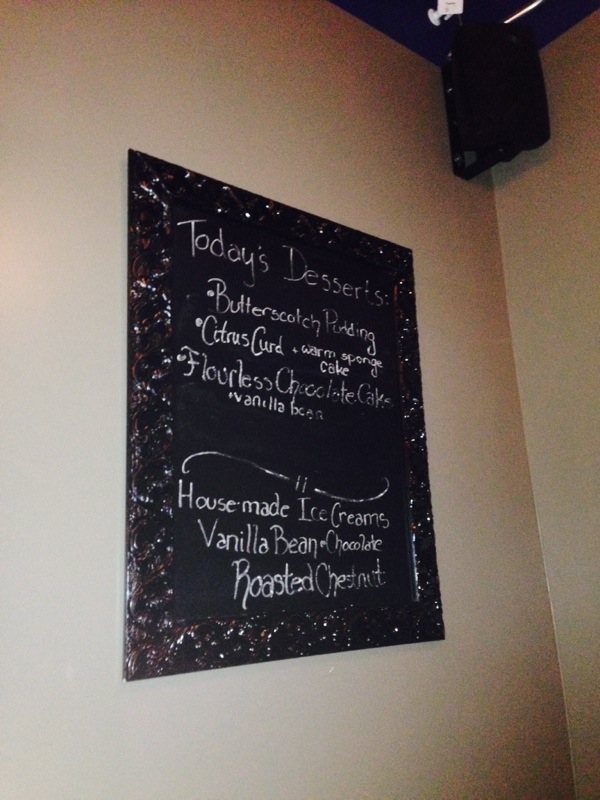 Today's Desserts:
•Butterscotch Pudding
•Citrus Curd + warm sponge
cake
•Flourless Chocolate Cake
+vanilla bean
House-made Ice Creams
Vanilla Bean•Chocolate
Roasted Chestnut